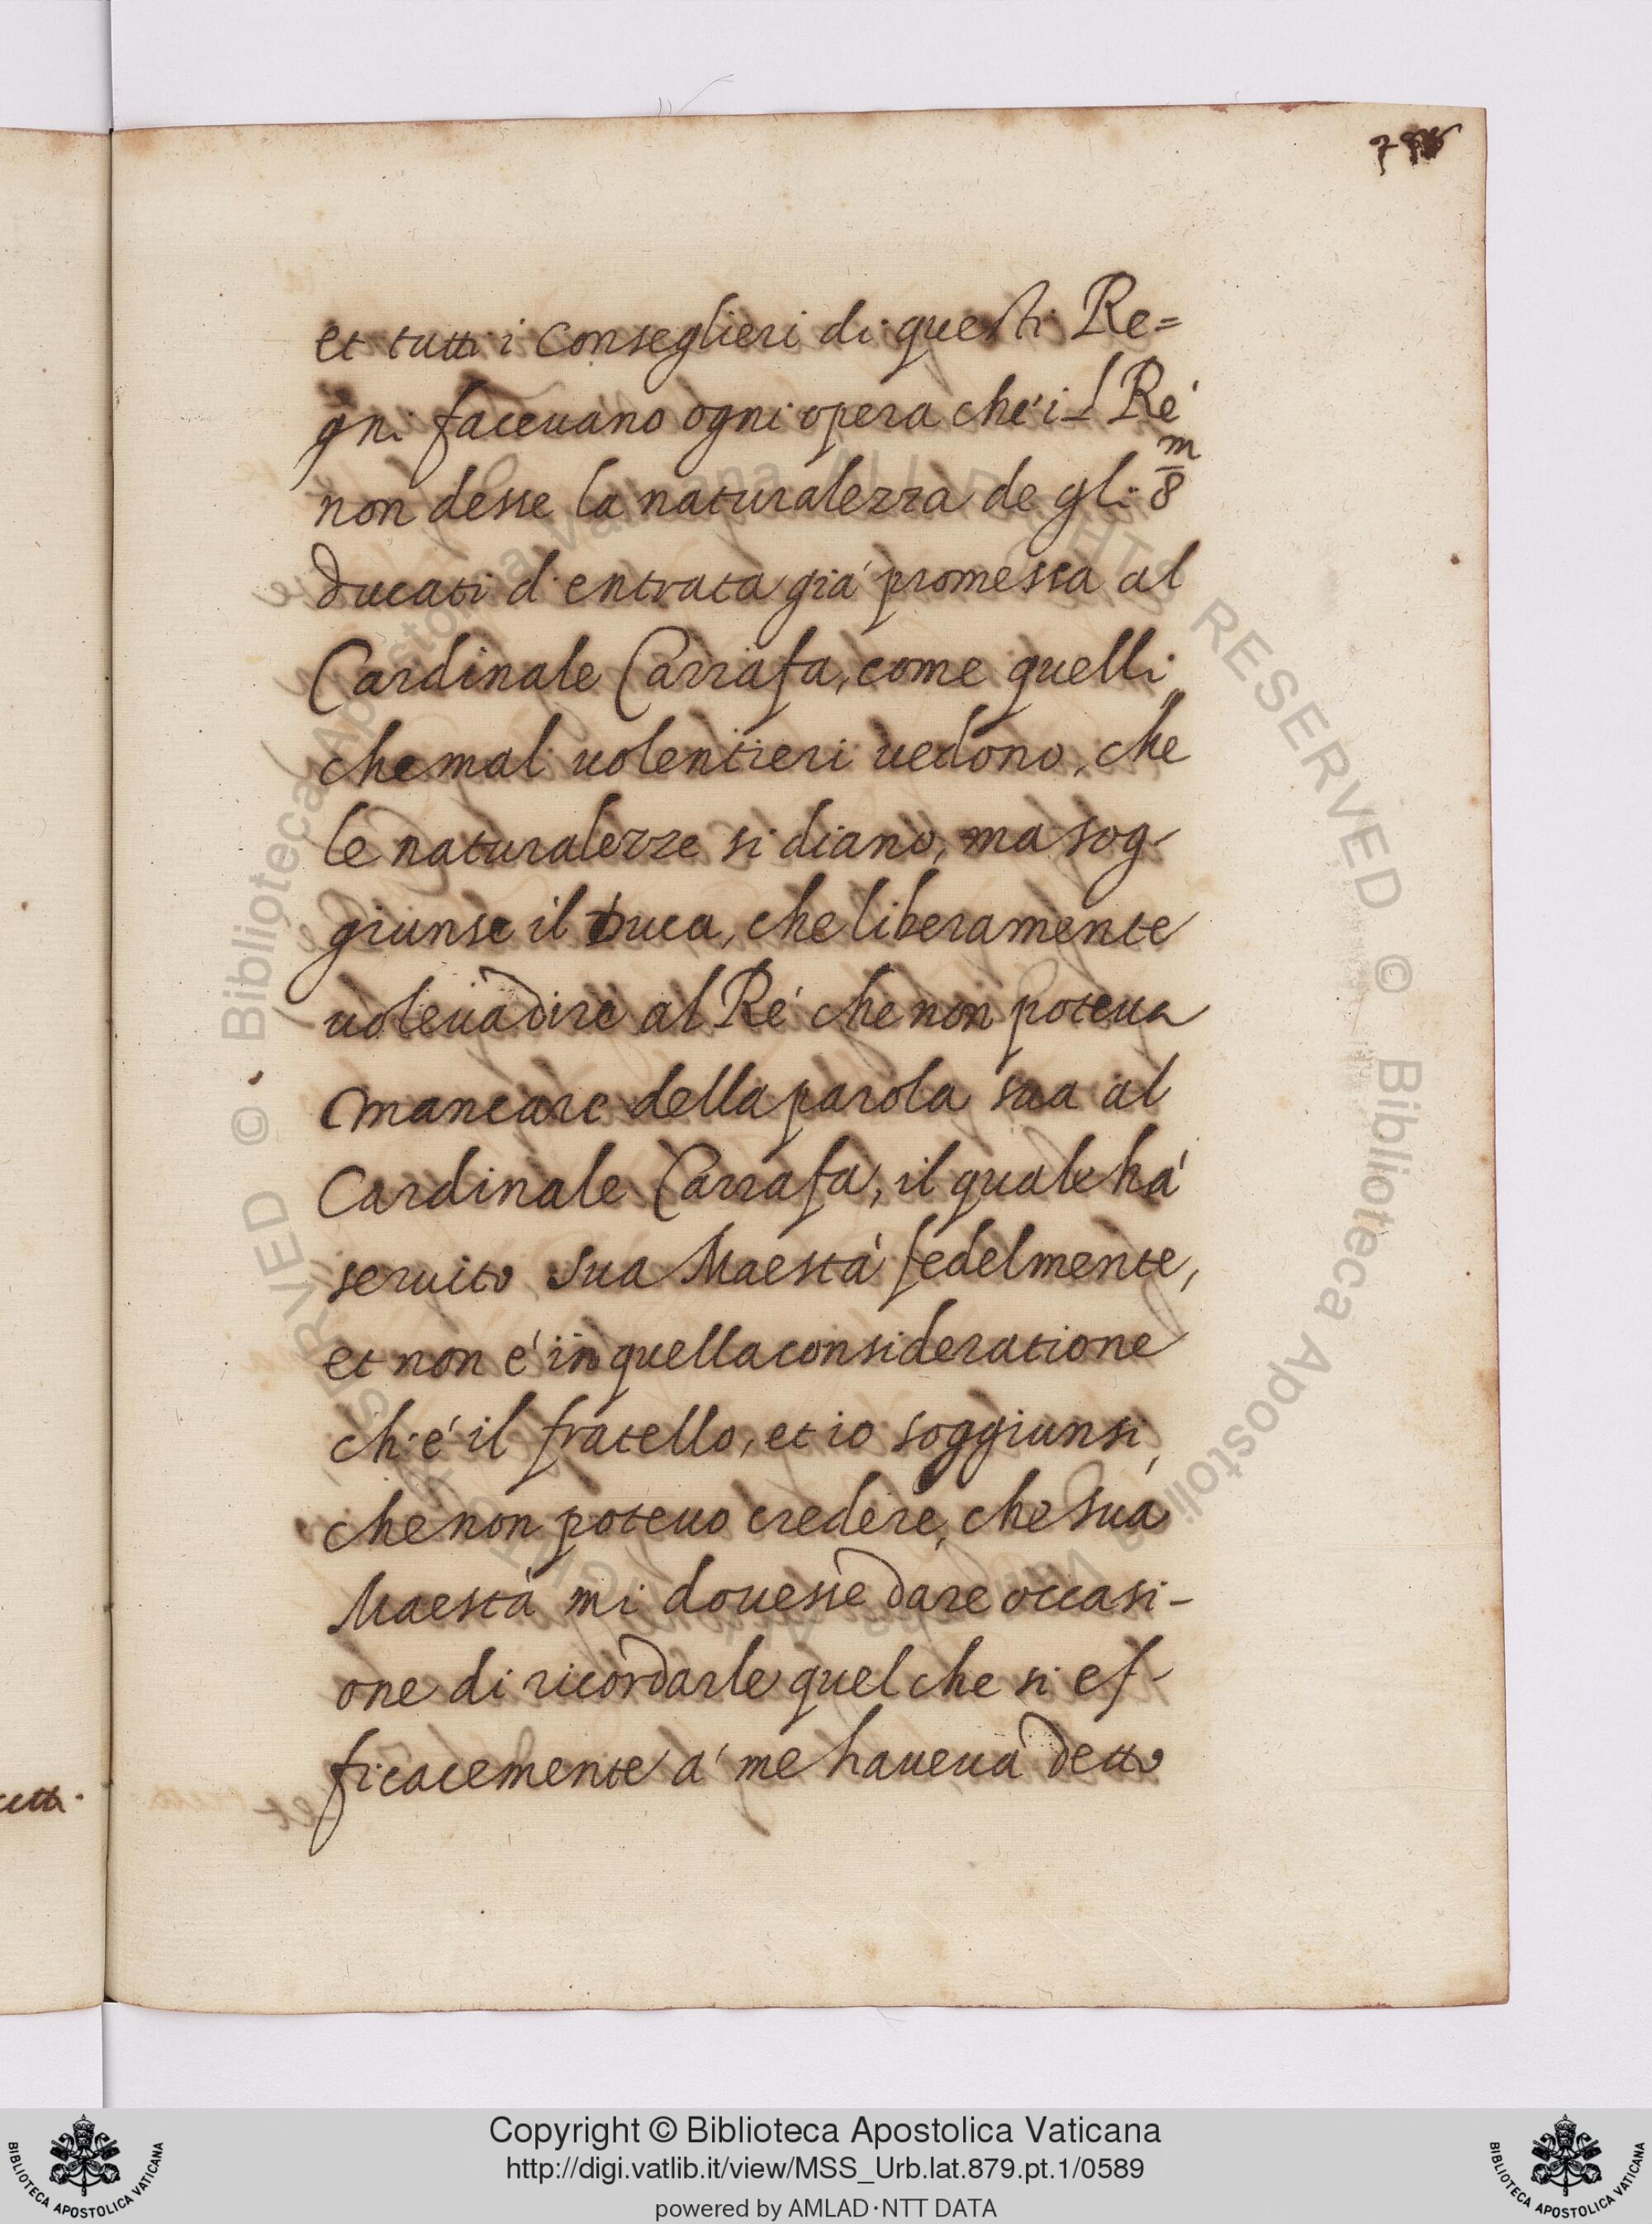 et tutti i Conseglieri di questi Re=
gni faceuano ogni opera che'il Ré
non desse la naturalezza de gli 8m
ducati d'entrata giá promessa al
Cardinale Carrafa, come quelli,
che mal uolentieri uedono, che
le naturalezze si diano, ma sog-
giunse il Duca, che liberamente
uoleua dire al Ré che non poteua
mancare della parola sua al
Cardinale Carrafa, il quale há
seruito sua Maestá fedelmente,
et non é in quella consideratione
ch'é il fratello, et io soggiunsi,
che non poteuo credere, che sua
Maestá mi douesse dare occasi-
one di ricordarle quel che si ef-
ficacemente á me haueua detto
© Biblioteca Apostolica Vaticana ALL RIGHTS RESERVED © Biblioteca Apostolica Vaticana ALL RIGHTS RESERVED
Copyright © Biblioteca Apostolica Vaticana
http://digi.vatlib.it/view/MSS_Urb.lat.879.pt.1/0589
powered by AMLAD·NTT DATA
BIBLIOTECA APOSTOLICA VATICANA
BIBLIOTECA APOSTOLICA VATICANA